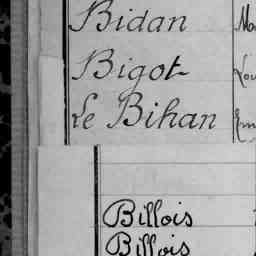 Bidan
Bigot
Le Bihan
Billois
Billois